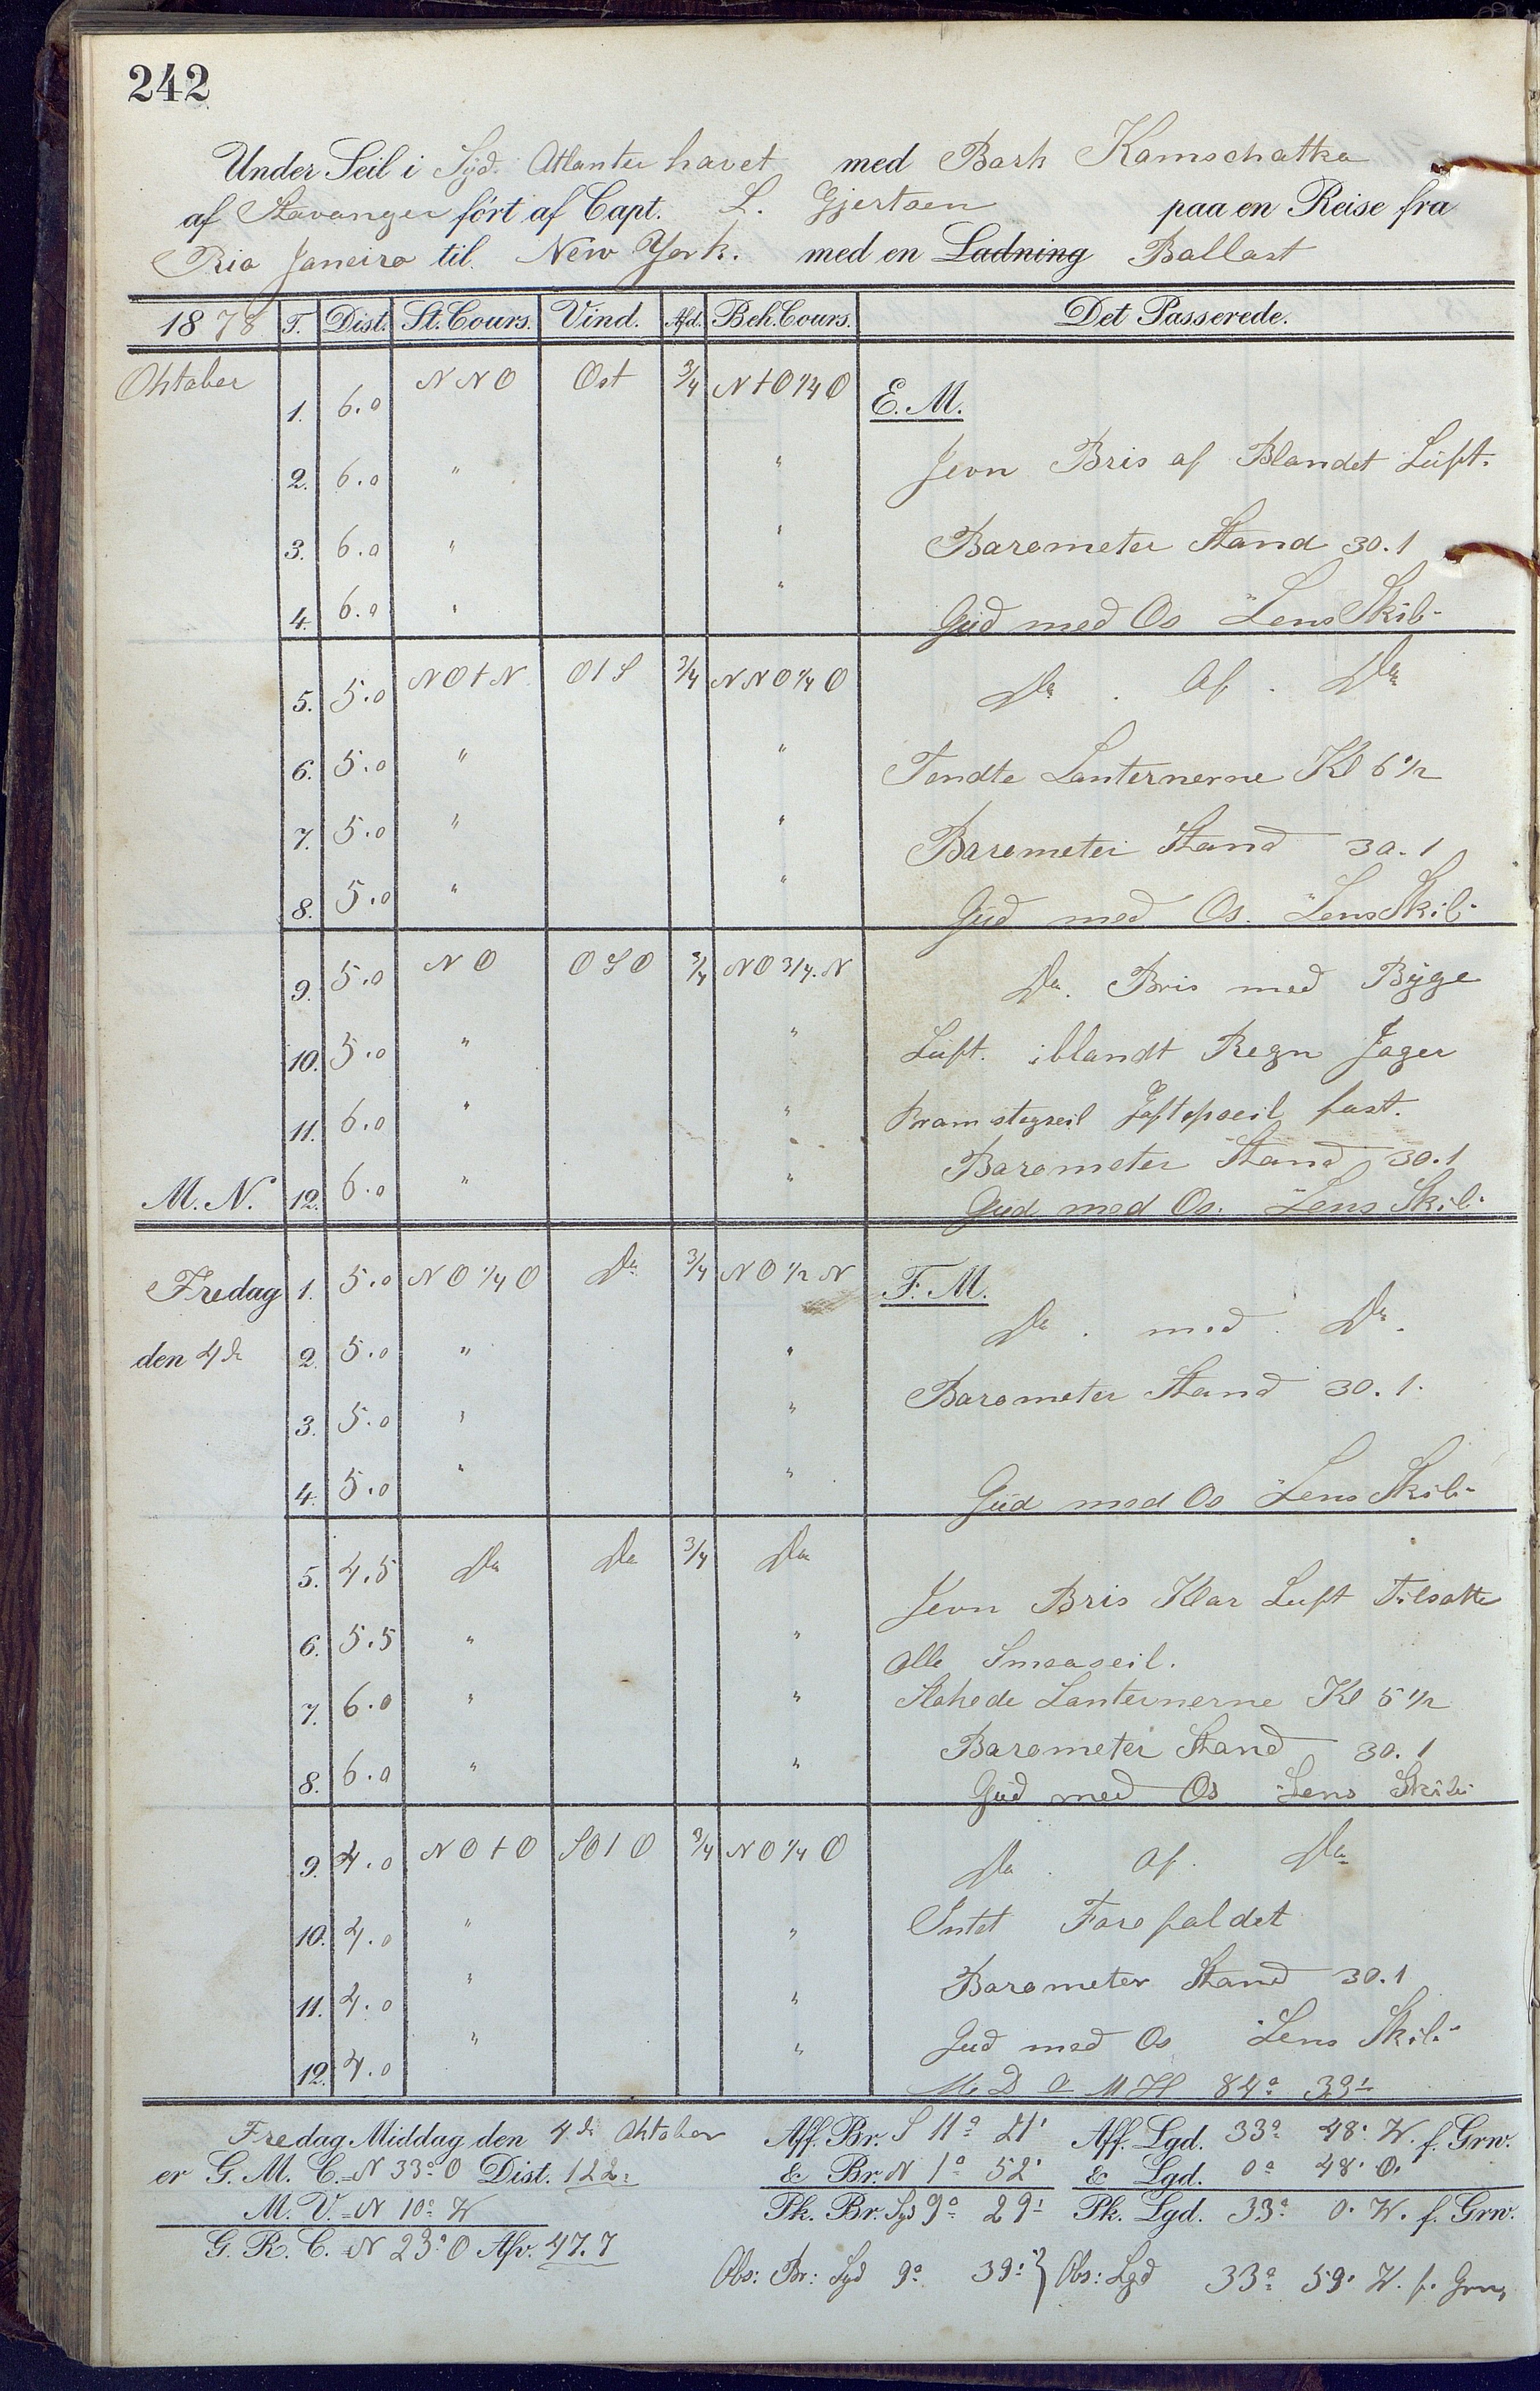 242
Under Seil i Syd. Atlanter havet med Bark Kamschatka
af Stavanger fört af Capt. L. Gjertsen paa en Reise fra
Rio Janeiro til New York. med en Ladning Ballast
1878 T. Dist. St. Cours. Vind. Afd. Beh. Cours. Det Passerede.
Oktober 1. 6.0 N N O Ost 3/4 N t O 1/4 O E. M.
2. 6.0 " " Jevn Bris af Blandet Luft.
3. 6.0 " " Barometer Stand 30.1
4. 6.0 " " Gud med Os "Lens Skib"
5. 5.0 N O t N O t S 3/4 N N O 1/4 O Do. Af. Do
6. 5.0 " " Tendte Lanternerne Kl 6 1/2
7. 5.0 " " Barometer Stand 30.1
8. 5.0 " " Gud med Os. "Lens Skib"
9. 5.0 N O O S O 3/4 N O 3/4. N Do. Bris med Byge
10. 5.0 " " Luft. iblandt Regn Jager
11. 6.0 " " Bram stagseil fast.
Barometer Stand 30.1
M. N. 12. 6.0 " " Gud med Os. "Lens Skib"
Fredag 1. 5.0 N O 1/4 O Do 3/4 N O 1/2 N F. M.
Do. med. Do.
den 4de 2. 5.0 " "
Barometer Stand 30.1.
3. 5.0 " "
4. 5.0 " " Gud med Os "Lens Skib"
5. 4.5 Do Do 3/4 Do
Jevn Bris Klar Luft Tilsatte
6. 5.5 " " alle Smaaseil.
7. 6.0 " " Slokede Lanternerne Kl 5 1/2
Barometer Stand 30.1
8. 6.0 " " Gud med Os "Lens Skib"
9. 4.0 N O t O S O t O 3/4 N O 1/4 O Do. Af. Do
10. 4.0 " " Intet Forefaldet
11. 4.0 " " Barometer Stand 30.1
Gud med Os "Lens Skib"
12. 4.0 " " M H 84° 39'
Fredag Middag den 4de Oktober Aff. Br. S 11° 21' Aff. Lgd. 33° 48' W. f. Grw.
er G. M. C. = N 33° O Dist. 122: & Br. N 1° 52' & Lgd. 0° 48' O.
M. V. = N 10° W Pk. Br. Syd 9° 29' Pk. Lgd. 33° 0' W. f. Grw.
G. R. C. = N 23° O Afv. 47.7
Obs: Br: Syd 9° 39' } Obs: Lgd 33° 59' W. f. Grw,